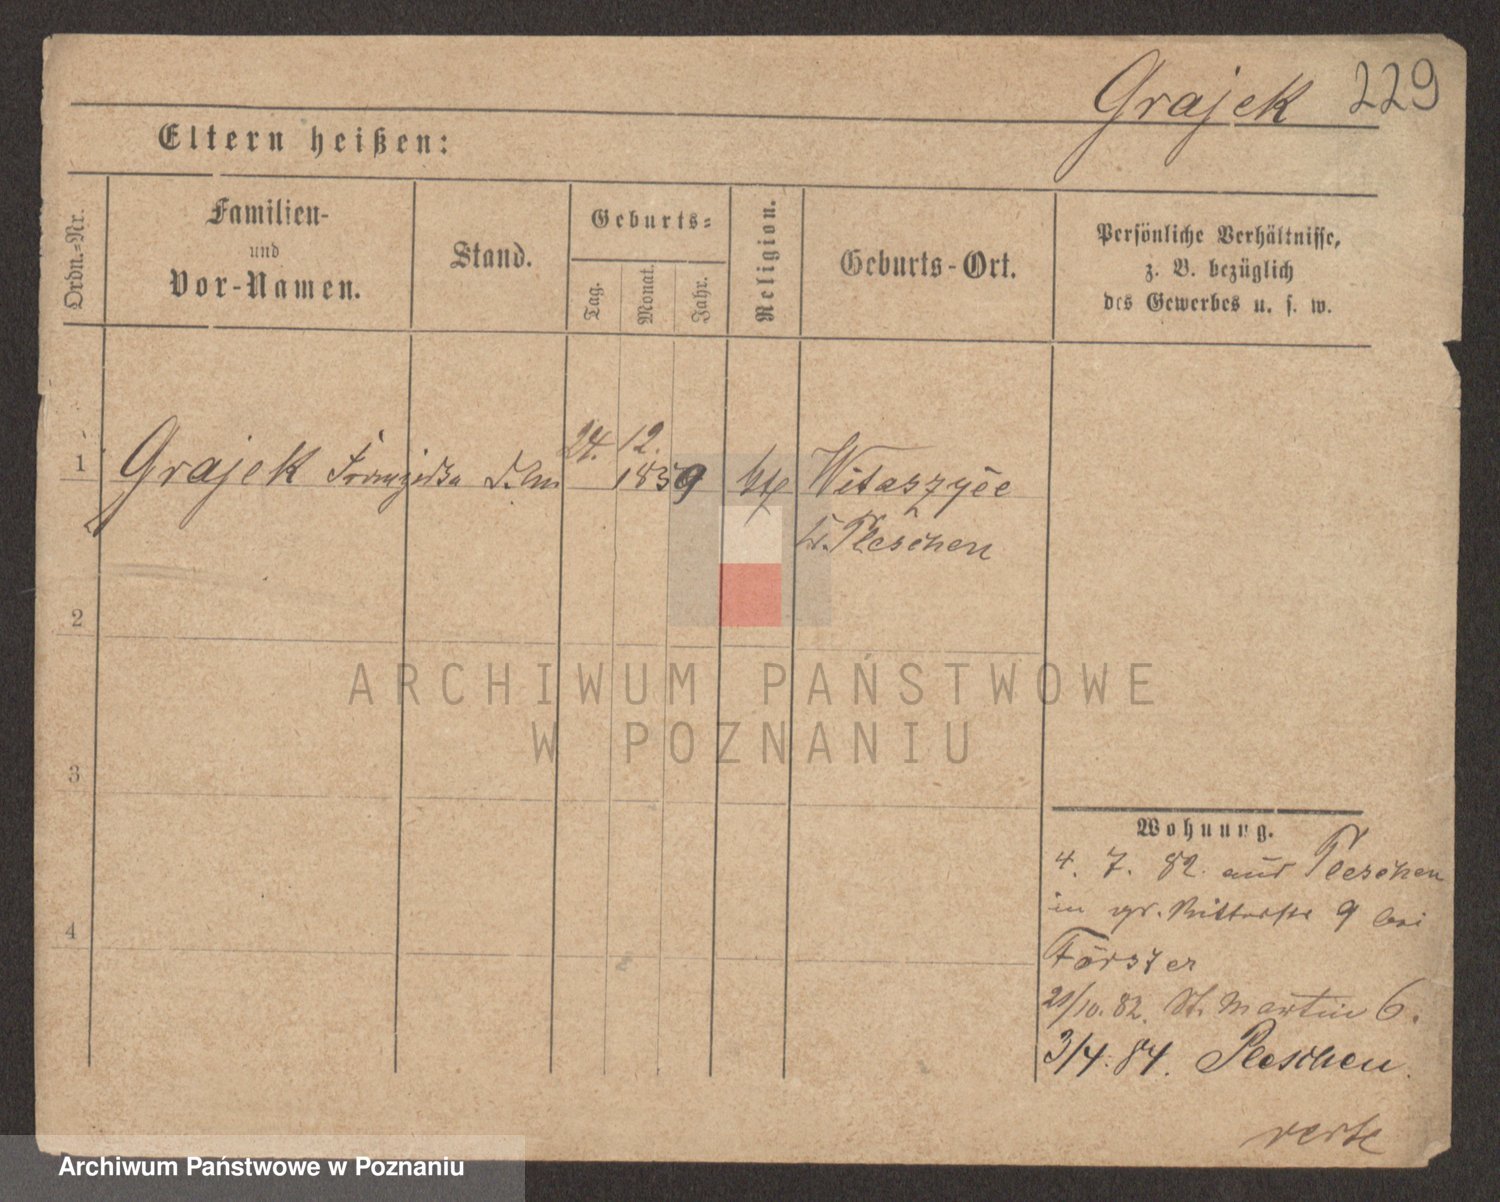 Grajek 229
Eltern heißen:
Ordn.=Nr.
Familien-
und
Vor-Namen.
Stand.
Geburts=
Tag.
Monat.
Jahr.
Religion.
Geburts-Ort.
Persönliche Verhältnisse,
z. B. bezüglich
des Gewerbes u. s. w.
24. 12.
1 Grajek Franziska 1859 kth Witaszyce
Kr. Pleschen
2
3
4
Wohnung.
4. 7. 82. aus Pleschen
in gr. Ritterstr 9 bei
Förster
21/10. 82. St. Martin 6.
3/4. 84. Pleschen.
verte
ARCHIWUM PAŃSTWOWE
W POZNANIU
Archiwum Państwowe w Poznaniu